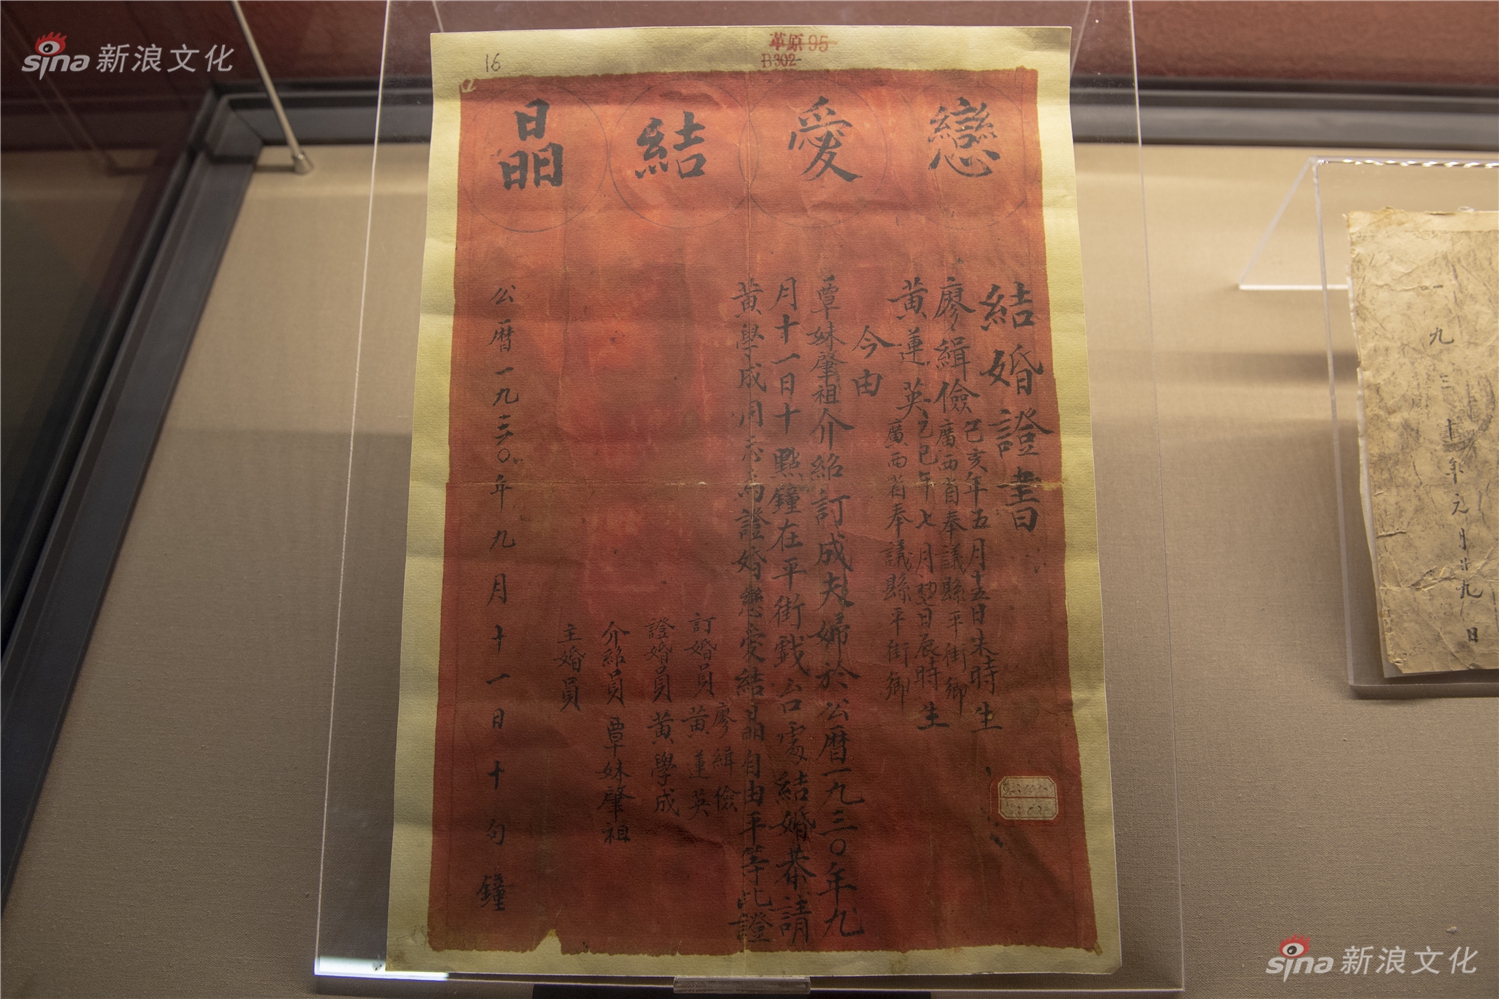 sina 新浪文化
16
革原95
B302
戀愛結晶
結婚證書
廖緝儉 己亥年五月十五日未時生
廣西省奉議縣平街鄉
黃蓮英 乙巳年七月初日辰時生
廣西省奉議縣平街鄉
今由
覃妹肇祖介紹訂成夫婦於公曆一九三〇年九
月十一日十點鐘在平街戲台處結婚恭請
黃學成同志為證婚戀愛結晶自由平等此證
訂婚員 廖緝儉 黃蓮英
證婚員 黃學成
介紹員 覃妹肇祖
主婚員
公曆一九三〇年九月十一日十句鐘
一九三 年元月廿九日
sina 新浪文化